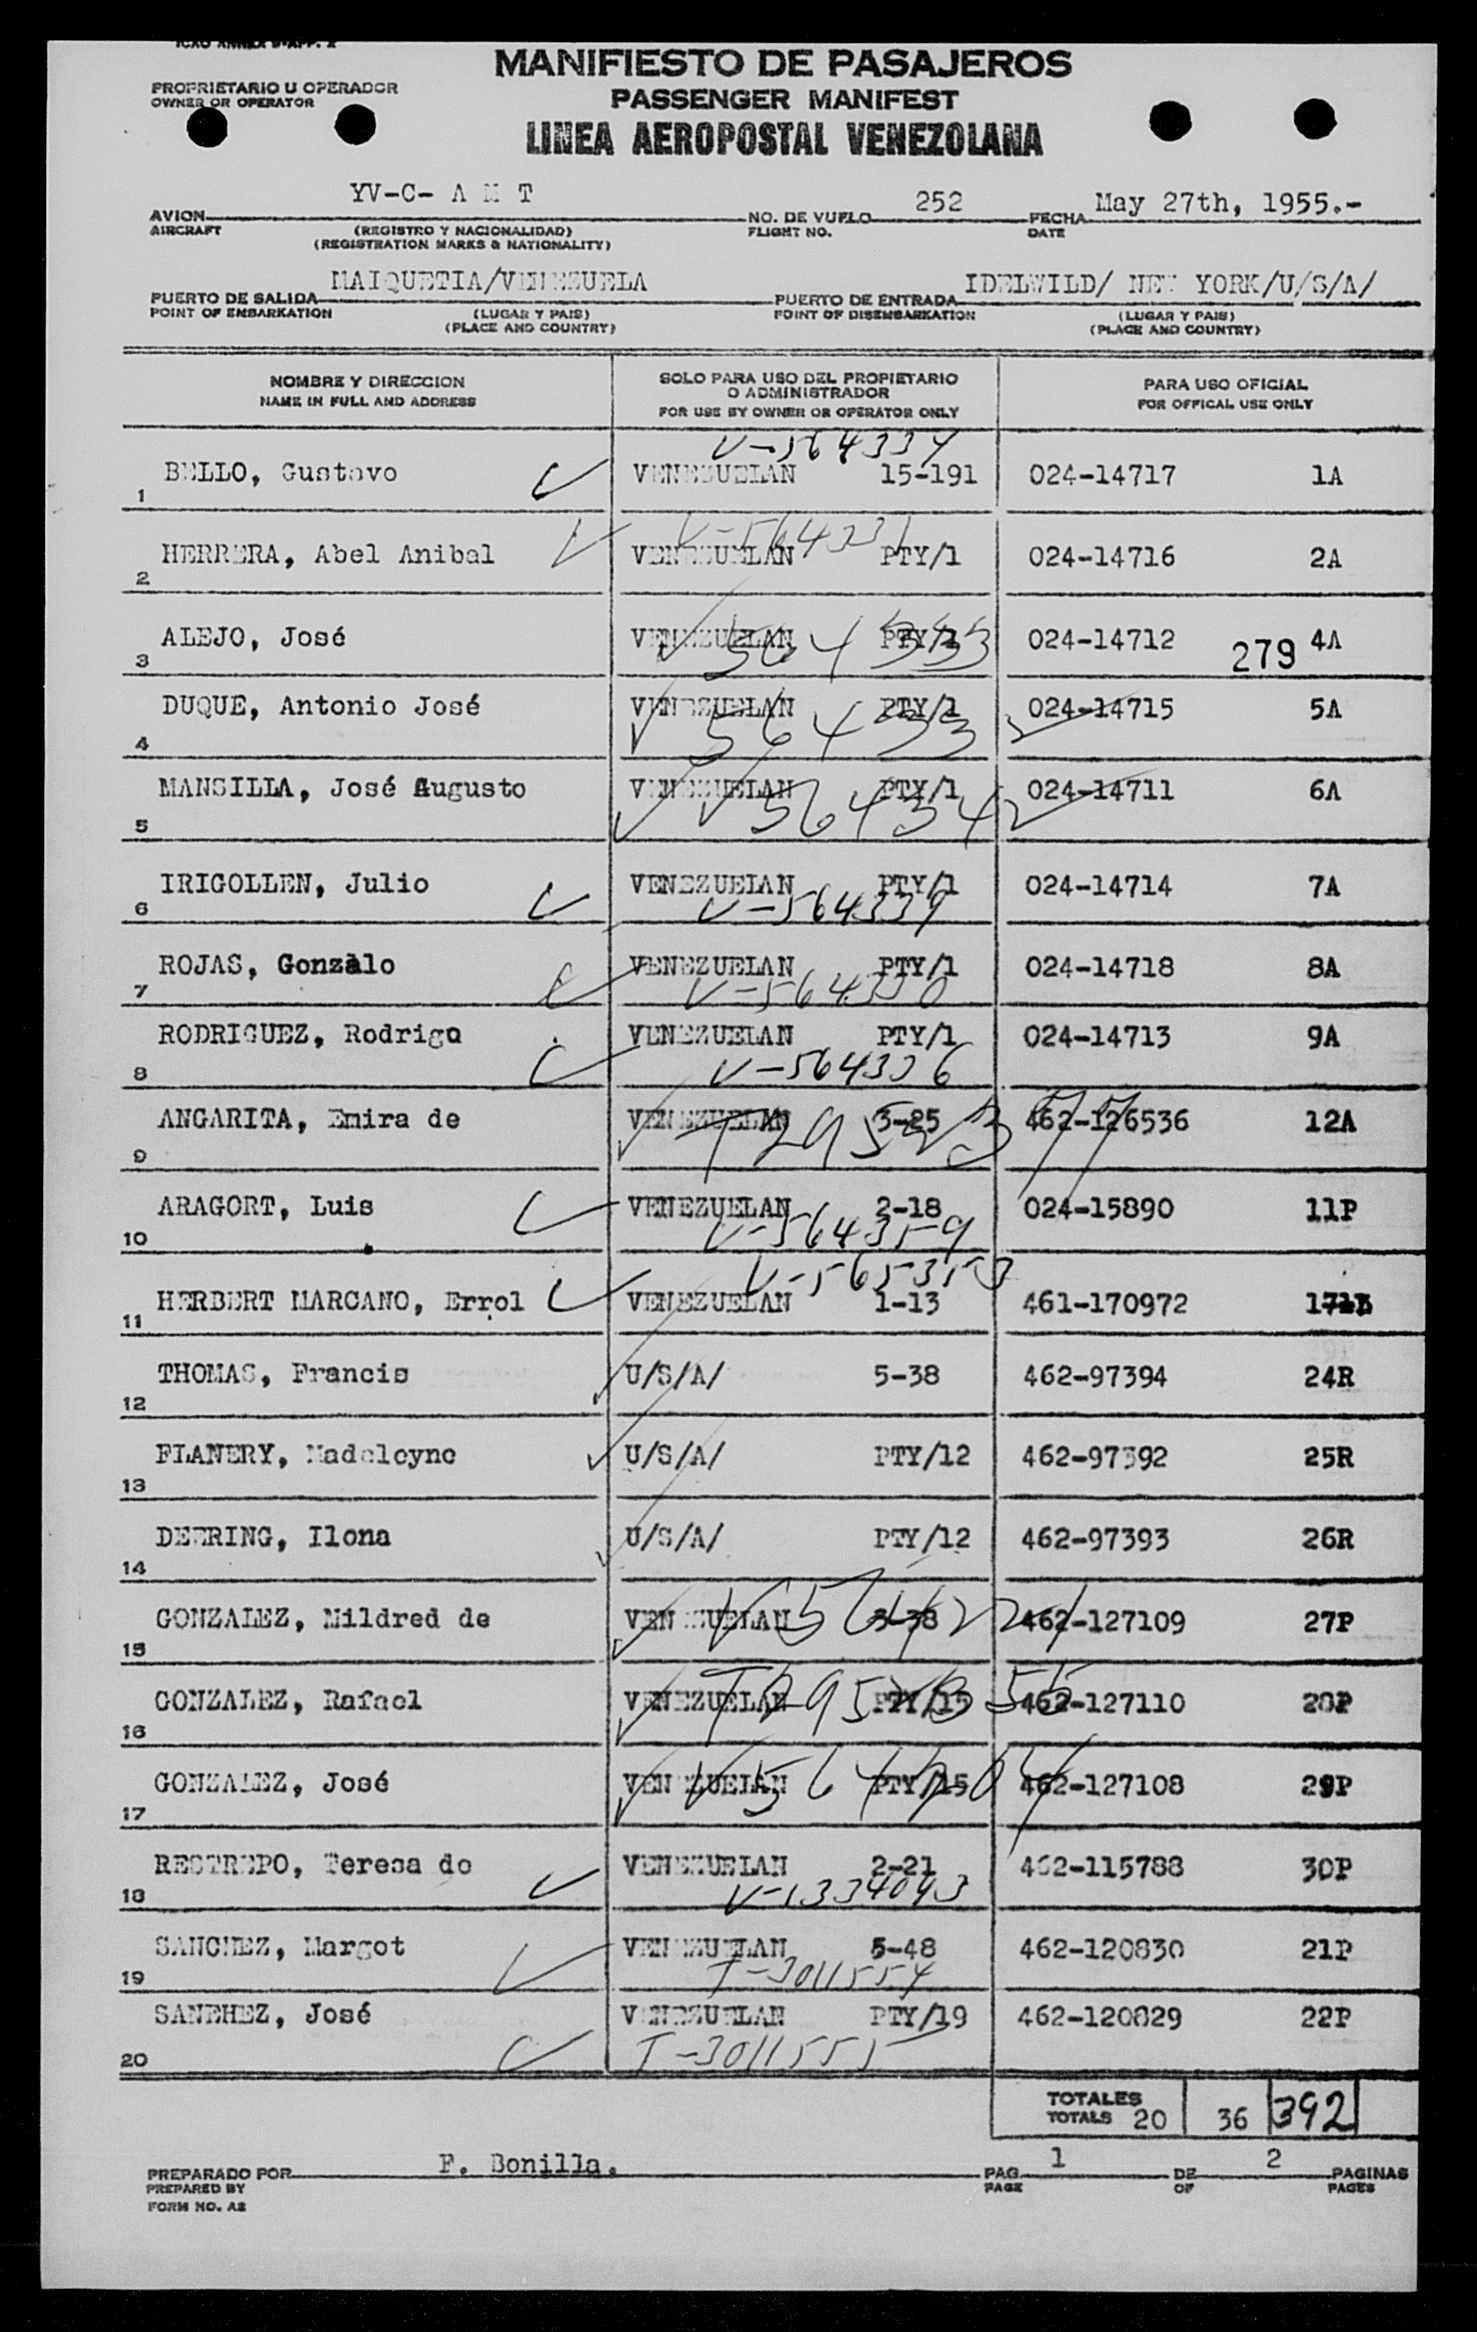 ICAO ANNEX 9-APP. 2
MANIFIESTO DE PASAJEROS
PROPRIETARIO U OPERADOR
OWNER OR OPERATOR
PASSENGER MANIFEST
LINEA AEROPOSTAL VENEZOLANA
YV-C- A M T 252 May 27th, 1955.-
AVION NO. DE VUELO FECHA
AIRCRAFT (REGISTRO Y NACIONALIDAD) FLIGHT NO. DATE
(REGISTRATION MARKS & NATIONALITY)
MAIQUETIA/VENEZUELA IDELWILD/ NEW YORK/U/S/A/
PUERTO DE SALIDA PUERTO DE ENTRADA
POINT OF EMBARKATION (LUGAR Y PAIS) POINT OF DISEMBARKATION (LUGAR Y PAIS)
(PLACE AND COUNTRY) (PLACE AND COUNTRY)
NOMBRE Y DIRECCION SOLO PARA USO DEL PROPIETARIO PARA USO OFICIAL
O ADMINISTRADOR
NAME IN FULL AND ADDRESS FOR USE BY OWNER OR OPERATOR ONLY FOR OFFICAL USE ONLY
V-564334
BELLO, Gustavo VENEZUELAN 15-191 024-14717 1A
1
HERRERA, Abel Anibal VENEZUELAN PTY/1 024-14716 2A
2
ALEJO, José VENEZUELAN PTY/1 024-14712 279 4A
3
DUQUE, Antonio José VENEZUELAN PTY/1 024-14715 5A
4
MANSILLA, José Augusto VENEZUELAN PTY/1 024-14711 6A
564342
5
IRIGOLLEN, Julio VENEZUELAN PTY/1 024-14714 7A
6 V-564339
ROJAS, Gonzalo VENEZUELAN PTY/1 024-14718 8A
7
RODRIGUEZ, Rodrigo VENEZUELAN PTY/1 024-14713 9A
8 V-564336
ANGARITA, Emira de VENEZUELAN 3-25 462-126536 12A
9
ARAGORT, Luis VENEZUELAN 2-18 024-15890 11P
10 V-564359
V-565353
HERBERT MARCANO, Errol VENEZUELAN 1-13 461-170972
11
THOMAS, Francis U/S/A/ 5-38 462-97394 24R
12
FLANERY, Madeleyne U/S/A/ PTY/12 462-97392 25R
13
DEERING, Ilona U/S/A/ PTY/12 462-97393 26R
14
GONZALEZ, Mildred de VENEZUELAN 3-38 462-127109 27P
15
GONZALEZ, Rafael VENEZUELAN PTY/15 462-127110 28P
16
GONZALEZ, José VENEZUELAN PTY/15 462-127108 29P
17
RESTREPO, Teresa de VENEZUELAN 2-21 462-115788 30P
18 V-1334093
SANCHEZ, Margot VENEZUELAN 5-48 462-120830 21P
19 T-3011554
SANEHEZ, José VENEZUELAN PTY/19 462-120829 22P
20 T-3011555
TOTALES
TOTALS 20 36 392
F. Bonilla. 1 2
PREPARADO POR PAG. DE PAGINAS
PREPARED BY PAGE OF PAGES
FORM NO. A2